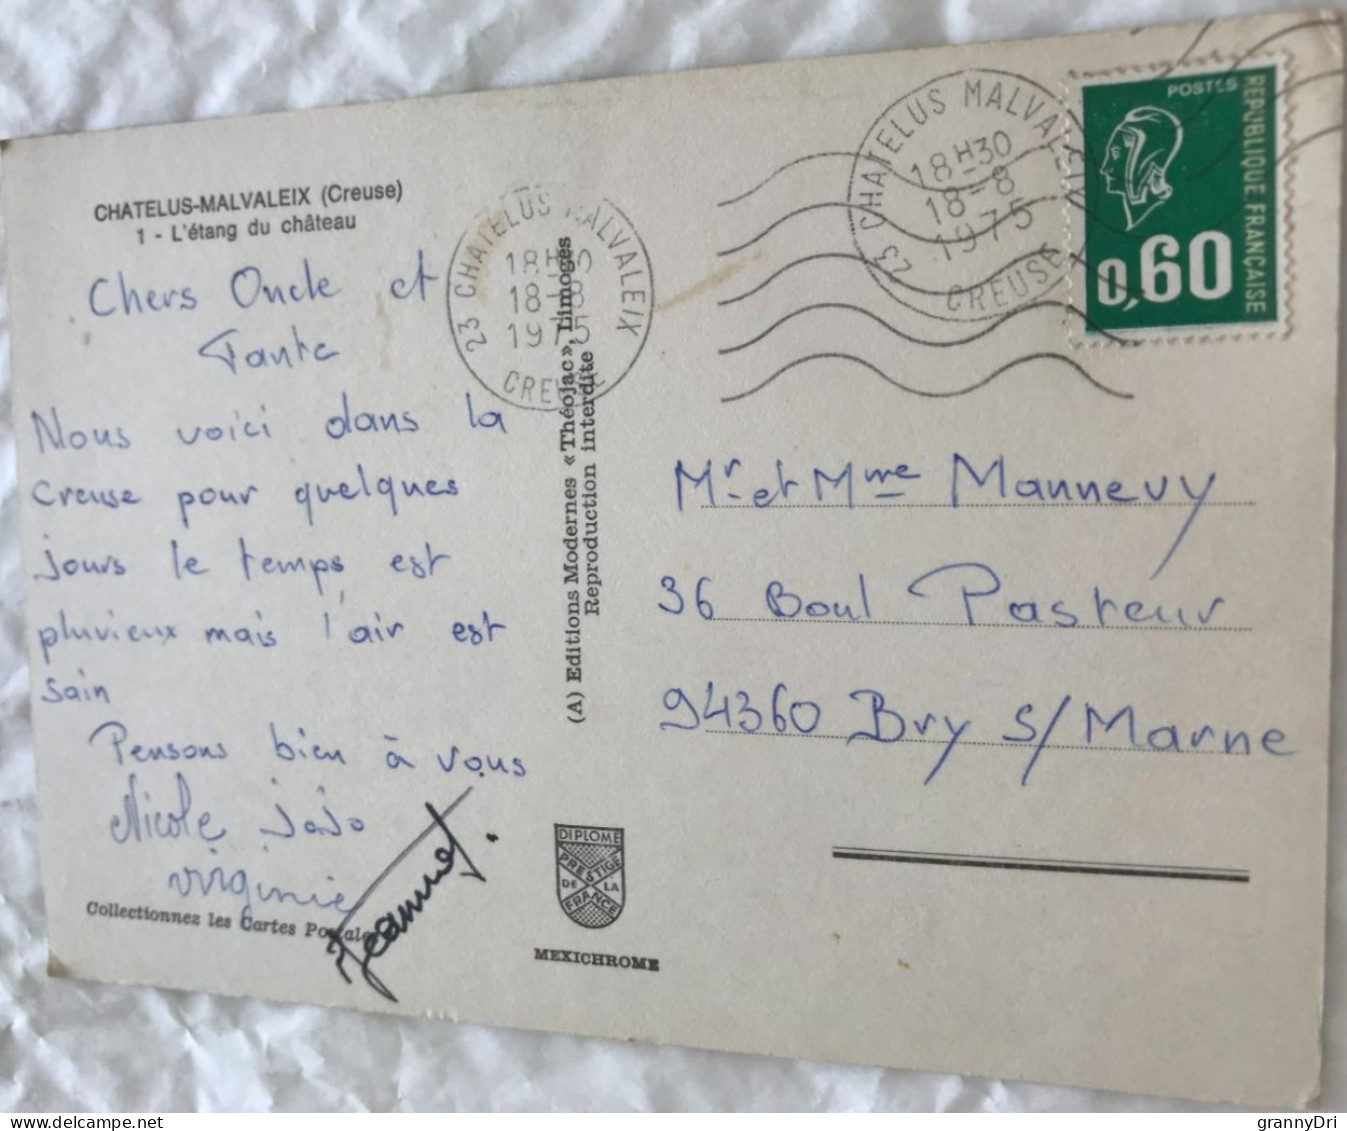 CHATELUS-MALVALEIX (Creuse)
1 - L'étang du château
Chers Oncle et
Tante
Nous voici dans la
Creuse pour quelques
jours le temps est
pluvieux mais l'air est
sain
Pensons bien à vous
Nicole JoJo
Virginie
Collectionnez les Cartes Postales
23 CHATELUS MALVALEIX
18H30
18-8
1975
CREUSE
(A) Editions Modernes «Théojac», Limoges
Reproduction interdite
DIPLOME
PRESTIGE
DE LA
FRANCE
MEXICHROME
23 CHATELUS MALVALEIX
18H30
18-8
1975
CREUSE
POSTES
REPUBLIQUE FRANÇAISE
0,60
Mr et Mme Mannevy
36 Boul Pasteur
94360 Bry S/Marne
grannyDri